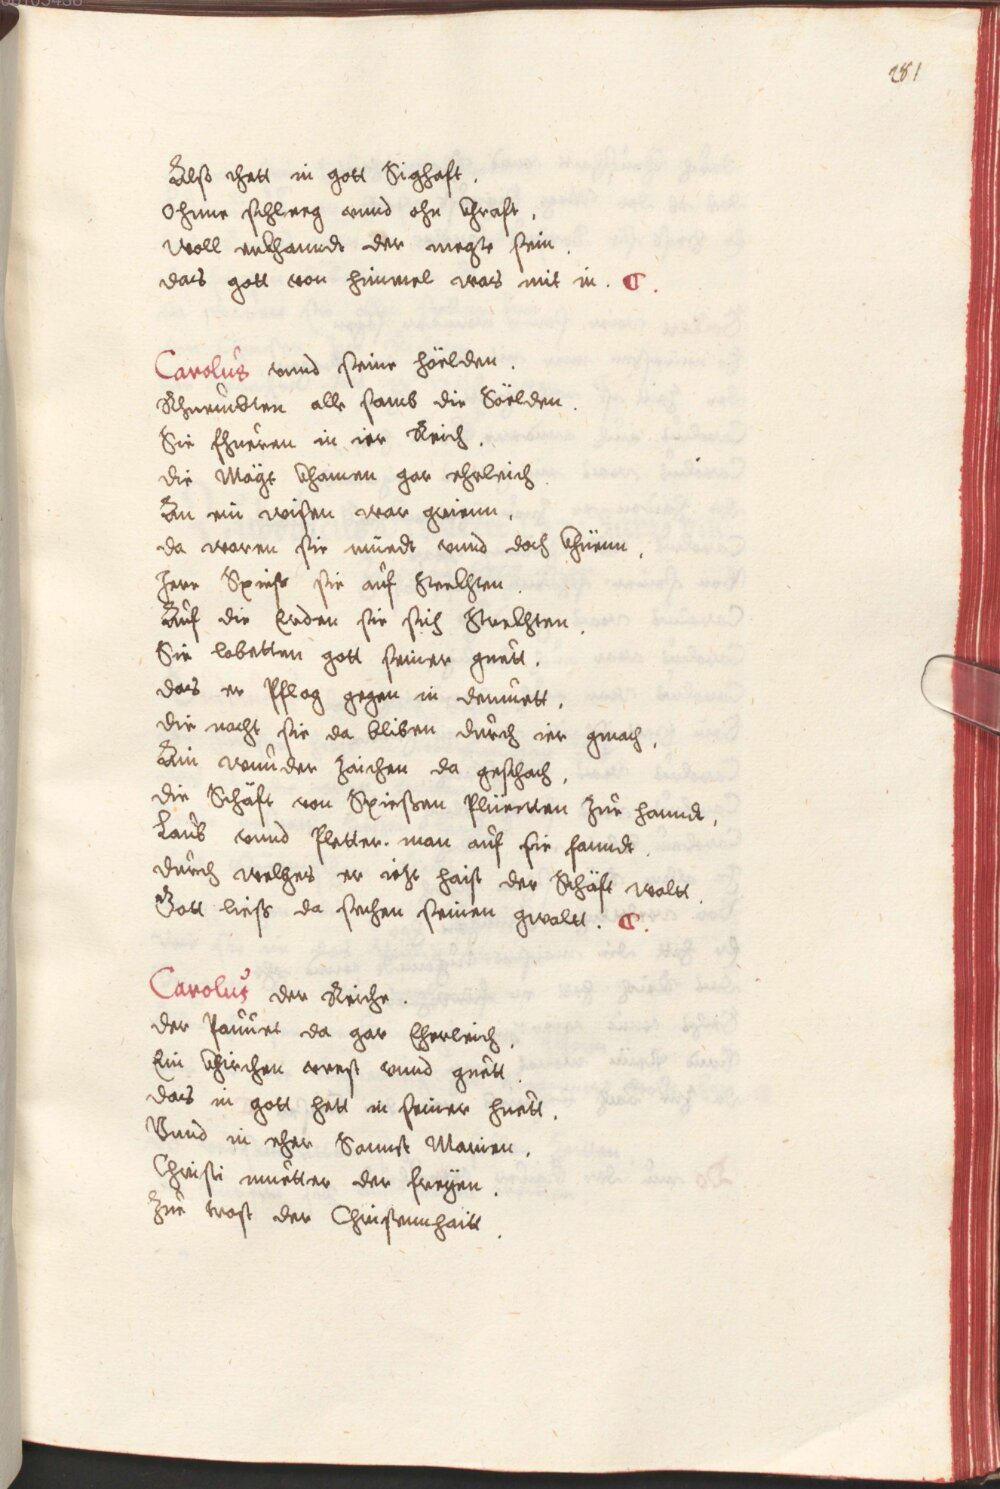 281
Alß thett in gott Sighaft.
Ohnne schleeg vnnd ohn Chraft,
Woll erkhanndt der megte sein.
das gott von himmel was mit in. C.
Carolus vnnd seine höelden.
Khnrůbten alle samb die Söelden.
Sie fhueren in ier Reich.
die Mägt khamen gar ehrleich
An ein wisen war grienn,
da waren sie müedt vnnd doch khüenn,
Jere Spieß sie auf Steckhten.
Auf die Erden sie sich Streckhten.
Sie lobetten gott seiner guett,
das er Pflag gegen in demuett,
die nacht sie da bliben durch ier gmach,
Ain wunder zaichen da geschach,
die Schäft von Spießen Plüeetten Zue hanndt,
Laub vnnd Pletter. man auf sie fanndt
durch welches er icht haist der Schäft waltt.
Gott ließ da sechen seinen gwaltt. C.
Carolus der Reiche.
der Pauuet da gar Eherleich,
Ein khirchen vest vnnd guett.
das in gott hett in seiner huett,
Vnnd in eher Sannct Marien,
Christi muetter der freyen
Zue trost der Christennhaitt.